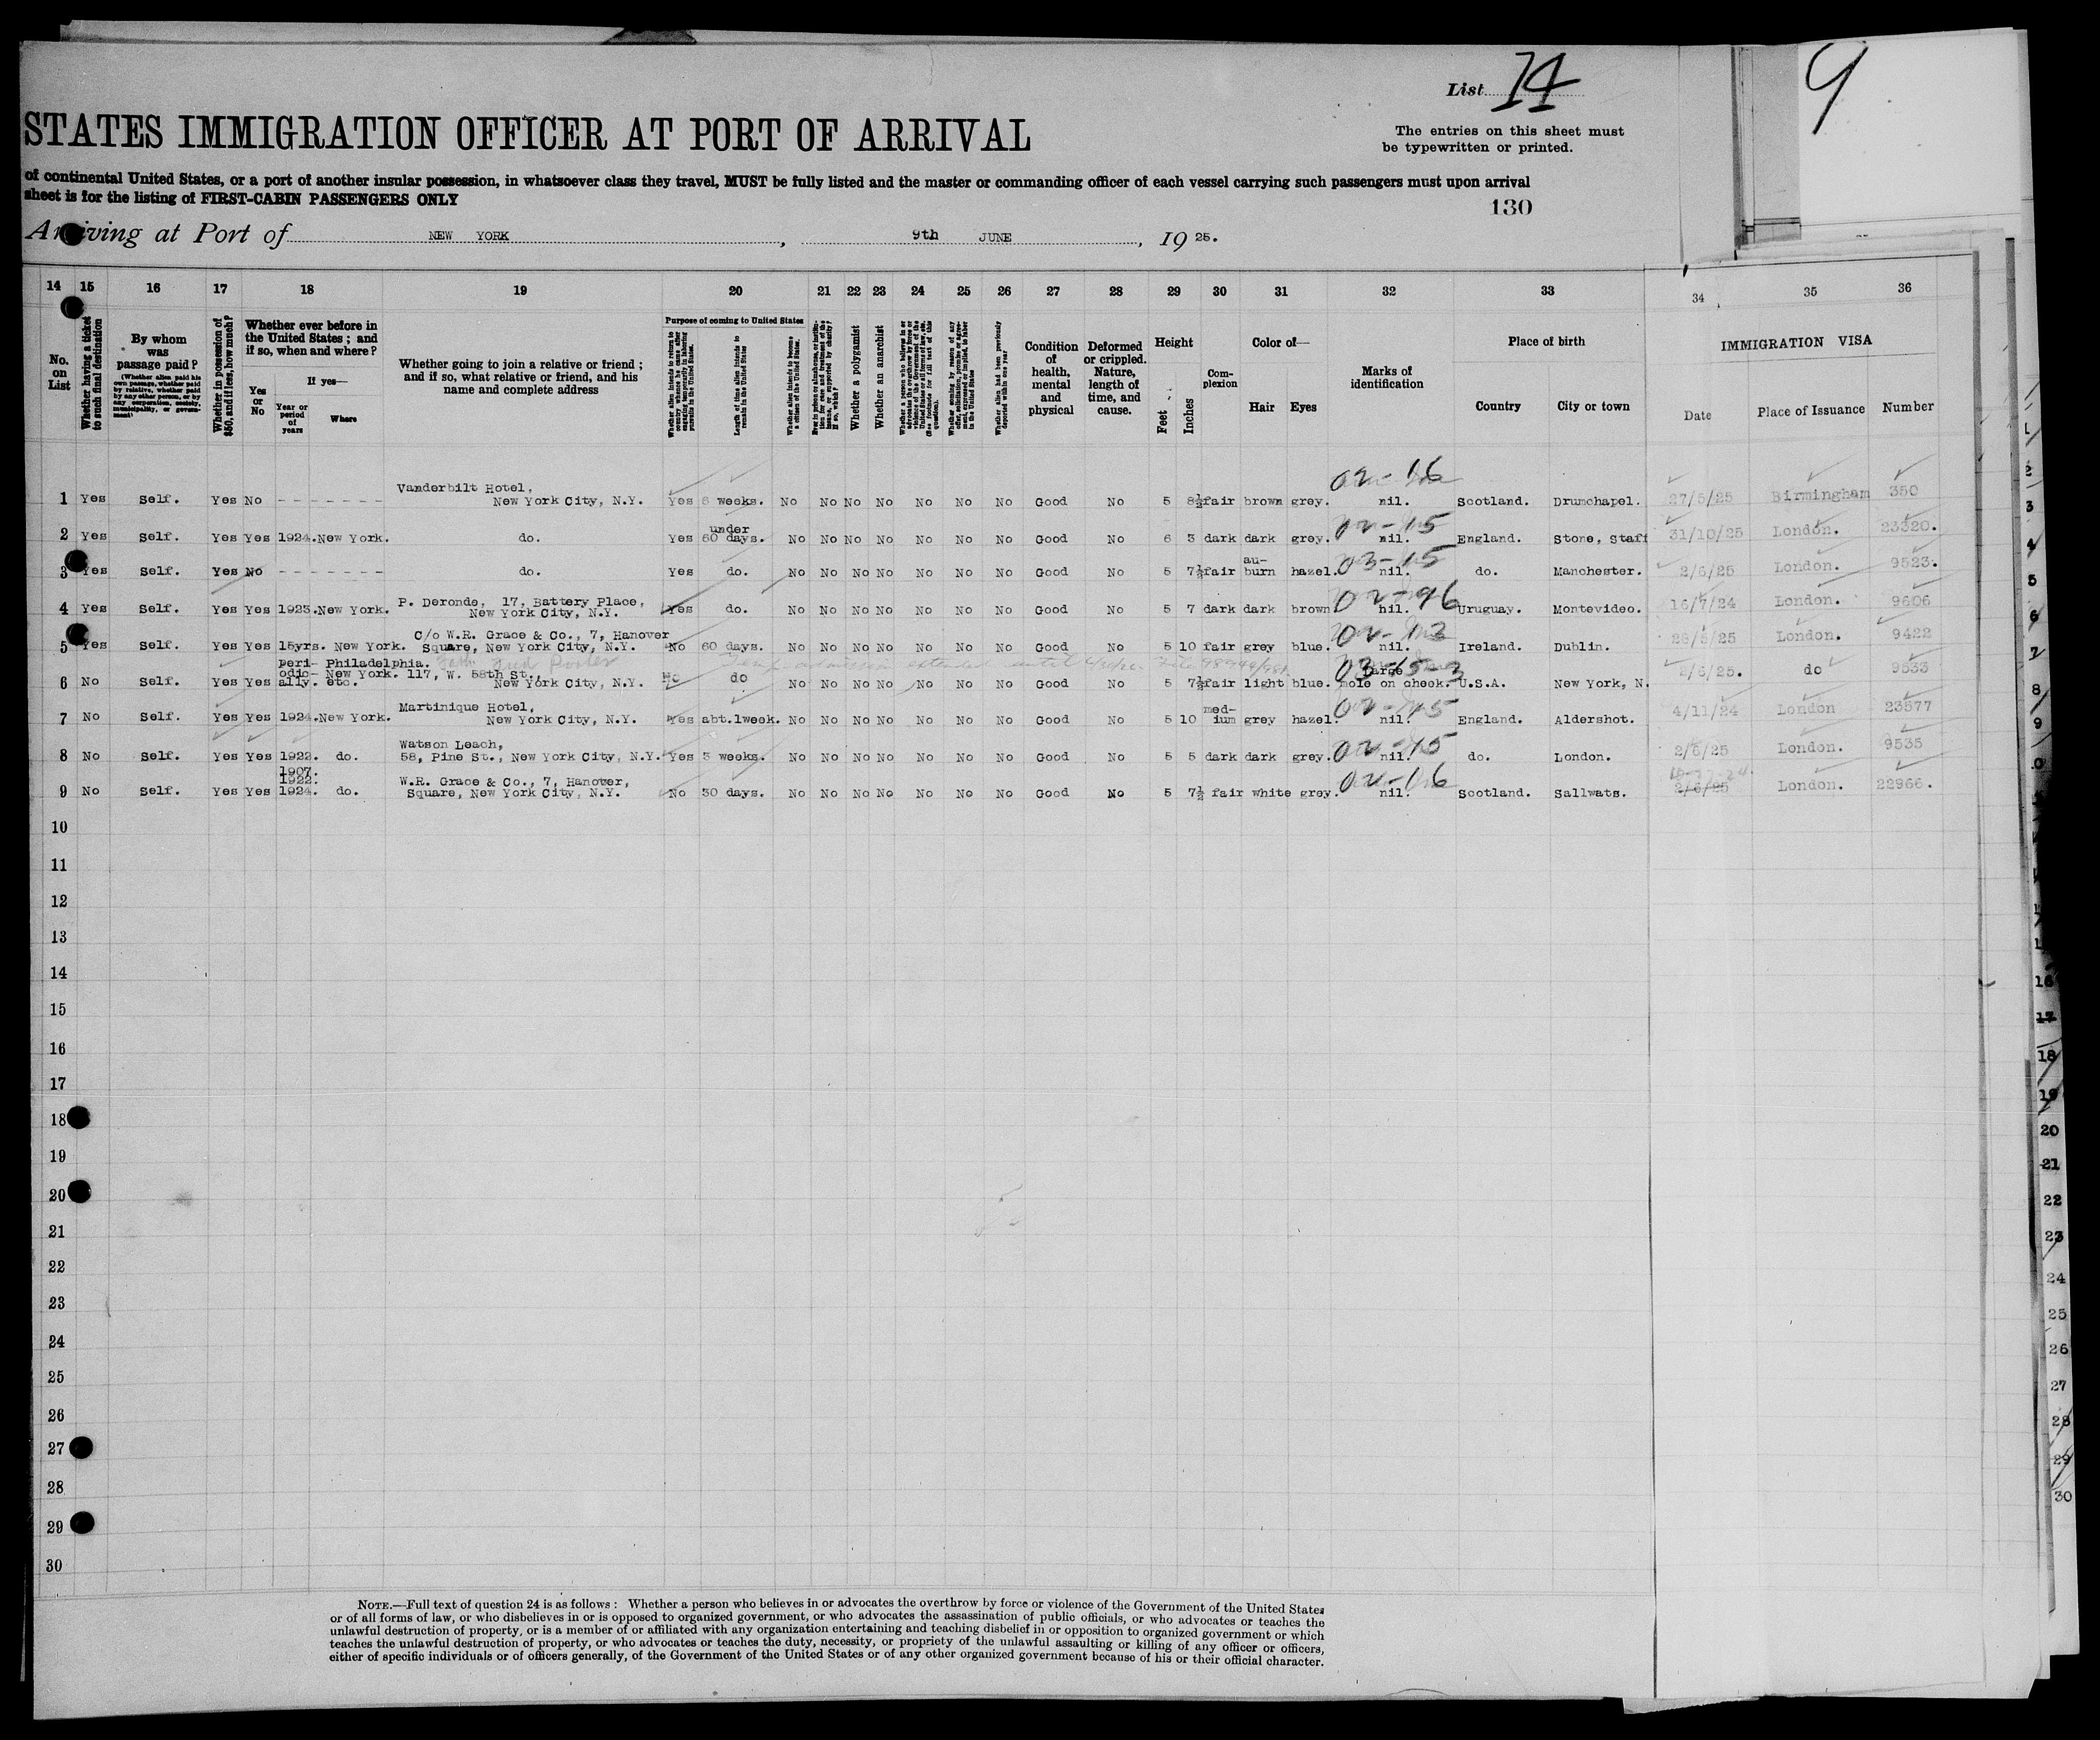 List 14
9
STATES IMMIGRATION OFFICER AT PORT OF ARRIVAL
The entries on this sheet must
be typewritten or printed.
of continental United States, or a port of another insular possession, in whatsoever class they travel, MUST be fully listed and the master or commanding officer of each vessel carrying such passengers must upon arrival
sheet is for the listing of FIRST-CABIN PASSENGERS ONLY
130
Arriving at Port of NEW YORK, 9th JUNE, 1925.
14 15 16 17 18 19 20 21 22 23 24 25 26 27 28 29 30 31 32 33 34 35 36
No. on List
Whether having a ticket to such final destination
By whom was passage paid?
(Whether alien paid his own passage, whether paid by relative, whether paid by any other person, or by any corporation, society, municipality, or government)
Whether in possession of $50, and if less, how much?
Whether ever before in the United States; and if so, when and where?
Yes or No
If yes—
Year or period of years
Where
Whether going to join a relative or friend; and if so, what relative or friend, and his name and complete address
Purpose of coming to United States
Length of time alien intends to remain in the United States
Whether alien intends to become a citizen of the United States.
Whether a polygamist
Whether an anarchist
Condition of health, mental and physical
Deformed or crippled. Nature, length of time, and cause.
Height
Feet
Inches
Complexion
Color of—
Hair
Eyes
Marks of identification
Place of birth
Country
City or town
IMMIGRATION VISA
Date
Place of Issuance
Number
1 Yes Self. Yes No - - - - - - - Vanderbilt Hotel, New York City, N.Y. Yes 6 weeks. No No No No No No No Good No 5 8½ fair brown grey. nil. 02-16 Scotland. Drumchapel. 27/5/25 Birmingham 350
2 Yes Self. Yes Yes 1924. New York. do. Yes under 60 days. No No No No No No No Good No 6 3 dark dark grey. nil. 02-15 England. Stone, Staff 31/10/25 London. 23320.
3 Yes Self. Yes No - - - - - - - do. Yes do. No No No No No No No Good No 5 7½ fair au-burn hazel. nil. 03-15 do. Manchester. 2/6/25 London. 9523.
4 Yes Self. Yes Yes 1923. New York. P. Deronde, 17, Battery Place, New York City, N.Y. Yes do. No No No No No No No Good No 5 7 dark dark brown nil. 02-96 Uruguay. Montevideo. 16/7/24 London. 9606
5 Yes Self. Yes Yes 15yrs. New York. C/o W.R. Grace & Co., 7, Hanover Square, New York City, N.Y. No 60 days. No No No No No No No Good No 5 10 fair grey blue. nil. 02-13 Ireland. Dublin. 28/5/25 London. 9422
Temp admission extended until
6 No Self. Yes Yes peri-odic-ally. Philadelphia. New York. etc. 117, W. 58th St., New York City, N.Y. No do No No No No No No No Good No 5 7½ fair light blue. Large mole on cheek. 03-15-3 U.S.A. New York, N. 2/6/25. do 9533
7 No Self. Yes Yes 1924. New York. Martinique Hotel, New York City, N.Y. Yes abt.1week. No No No No No No No Good No 5 10 med-ium grey hazel. nil. 02-15 England. Aldershot. 4/11/24 London 23577
8 No Self. Yes Yes 1922. do. Watson Leach, 58, Pine St., New York City, N.Y. Yes 3 weeks. No No No No No No No Good No 5 5 dark dark grey. nil. 02-15 do. London. 2/6/25 London. 9535
9 No Self. Yes Yes 1907. 1922. 1924. do. W.R. Grace & Co., 7, Hanover, Square, New York City, N.Y. No 30 days. No No No No No No No Good No 5 7½ fair white grey. nil. 02-16 Scotland. Sallwats. 2/6/25 London. 22966.
10
11
12
13
14
15
16
17
18
19
20
21
22
23
24
25
26
27
28
29
30
NOTE.—Full text of question 24 is as follows: Whether a person who believes in or advocates the overthrow by force or violence of the Government of the United States
or of all forms of law, or who disbelieves in or is opposed to organized government, or who advocates the assassination of public officials, or who advocates or teaches the
unlawful destruction of property, or is a member of or affiliated with any organization entertaining and teaching disbelief in or opposition to organized government or which
teaches the unlawful destruction of property, or who advocates or teaches the duty, necessity, or propriety of the unlawful assaulting or killing of any officer or officers,
either of specific individuals or of officers generally, of the Government of the United States or of any other organized government because of his or their official character.